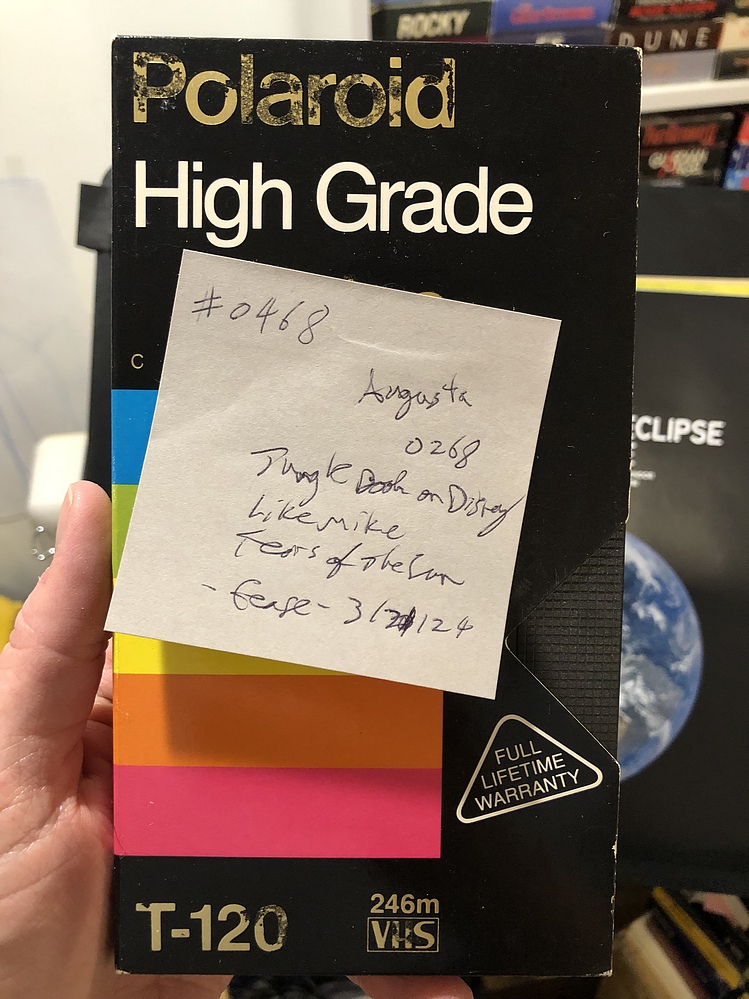 ROCKY
DUNE
Polaroid
High Grade
#0468
C
Augusta
0268
Jungle Book on Disney
Like Mike
Tears of the Sun
ECLIPSE
FULL
LIFETIME
WARRANTY
T-120
246m
VHS